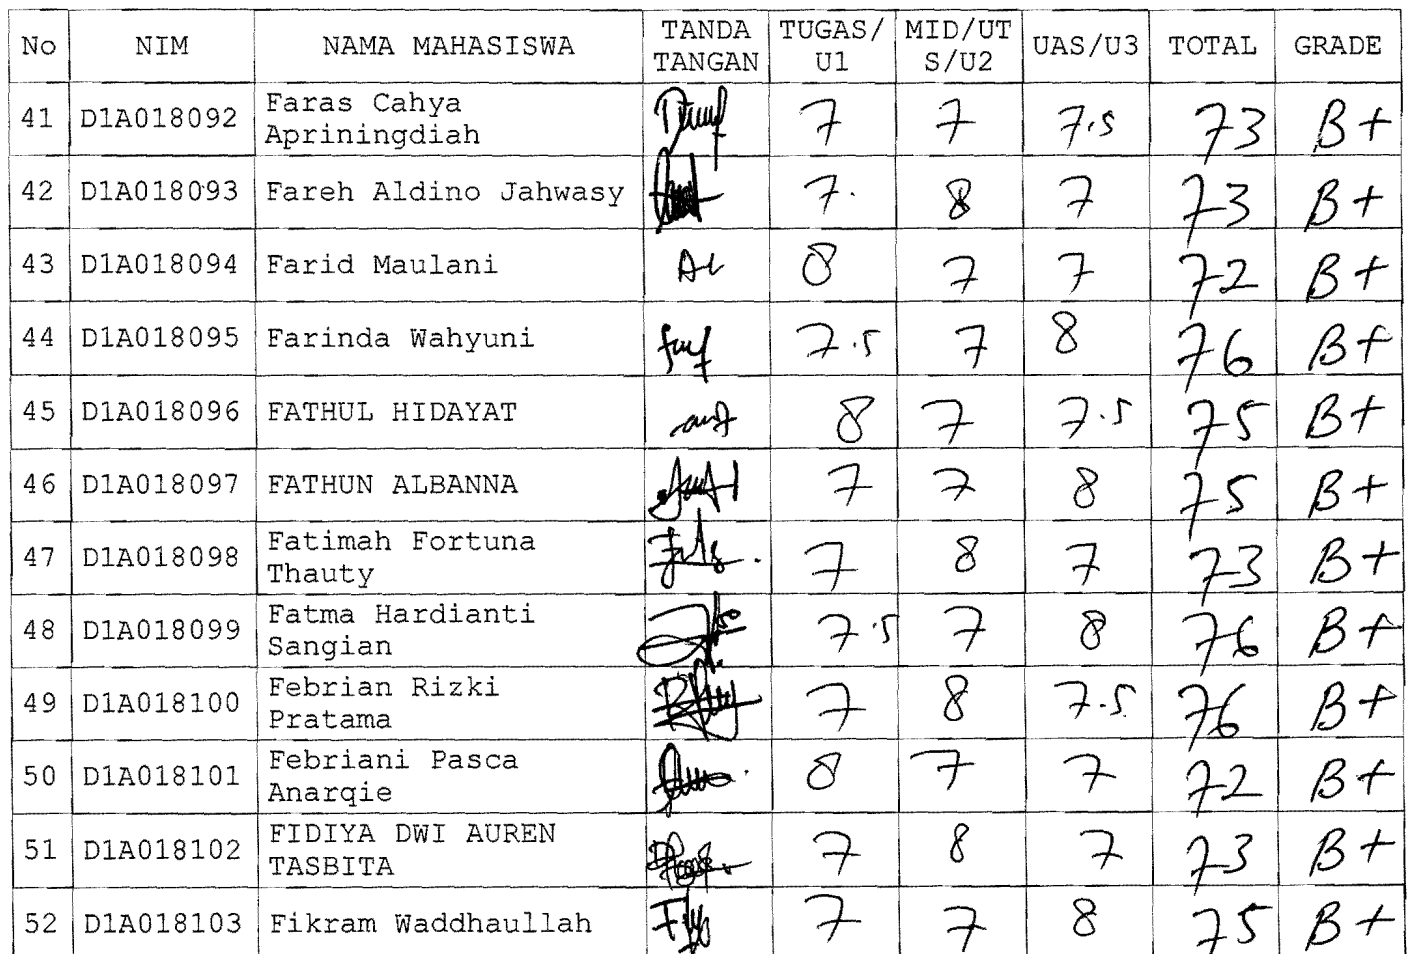 No NIM NAMA MAHASISWA TANDA TANGAN TUGAS/U1 MID/UTS/U2 UAS/U3 TOTAL GRADE
41 D1A018092 Faras Cahya Apriningdiah 7 7 7.5 73 B+
42 D1A018093 Fareh Aldino Jahwasy 7. 8 7 73 B+
43 D1A018094 Farid Maulani 8 7 7 72 B+
44 D1A018095 Farinda Wahyuni 7.5 7 8 76 B+
45 D1A018096 FATHUL HIDAYAT 8 7 7.5 75 B+
46 D1A018097 FATHUN ALBANNA 7 7 8 75 B+
47 D1A018098 Fatimah Fortuna Thauty 7 8 7 73 B+
48 D1A018099 Fatma Hardianti Sangian 7.5 7 8 76 B+
49 D1A018100 Febrian Rizki Pratama 7 8 7.5 76 B+
50 D1A018101 Febriani Pasca Anarqie 8 7 7 72 B+
51 D1A018102 FIDIYA DWI AUREN TASBITA 7 8 7 73 B+
52 D1A018103 Fikram Waddhaullah 7 7 8 75 B+